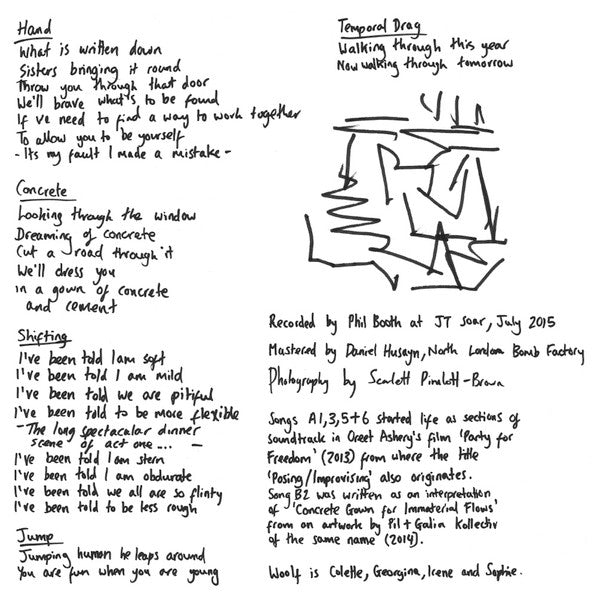 Hand
What is written down
Sisters bringing it round
Throw you through that door
We'll brave what's to be found
If we need to find a way to work together
To allow you to be yourself
- Its my fault I made a mistake -
Concrete
Looking through the window
Dreaming of concrete
Cut a road through it
We'll dress you
in a gown of concrete
and cement
Shifting
I've been told I am soft
I've been told I am mild
I've been told we are pitiful
I've been told to be more flexible
- The long spectacular dinner
scene of act one... -
I've been told I am stern
I've been told I am obdurate
I've been told we all are so flinty
I've been told to be less rough
Jump
Jumping human he leaps around
You are fun when you are young
Temporal Drag
Walking through this year
Now walking through tomorrow
Recorded by Phil Booth at JT Soar, July 2015
Mastered by Daniel Husayn, North London Bomb Factory
Photography by Scarlett Pimlott-Brown
Songs A1,3,5+6 started life as sections of
soundtrack in Oreet Ashery's film 'Party for
Freedom' (2013) from where the title
'Posing/Improvising' also originates.
Song B2 was written as an interpretation
of 'Concrete Gown for Immaterial Flows'
from an artwork by Pil + Galia Kollectiv
of the same name (2014).
Woolf is Colette, Georgina, Irene and Sophie.